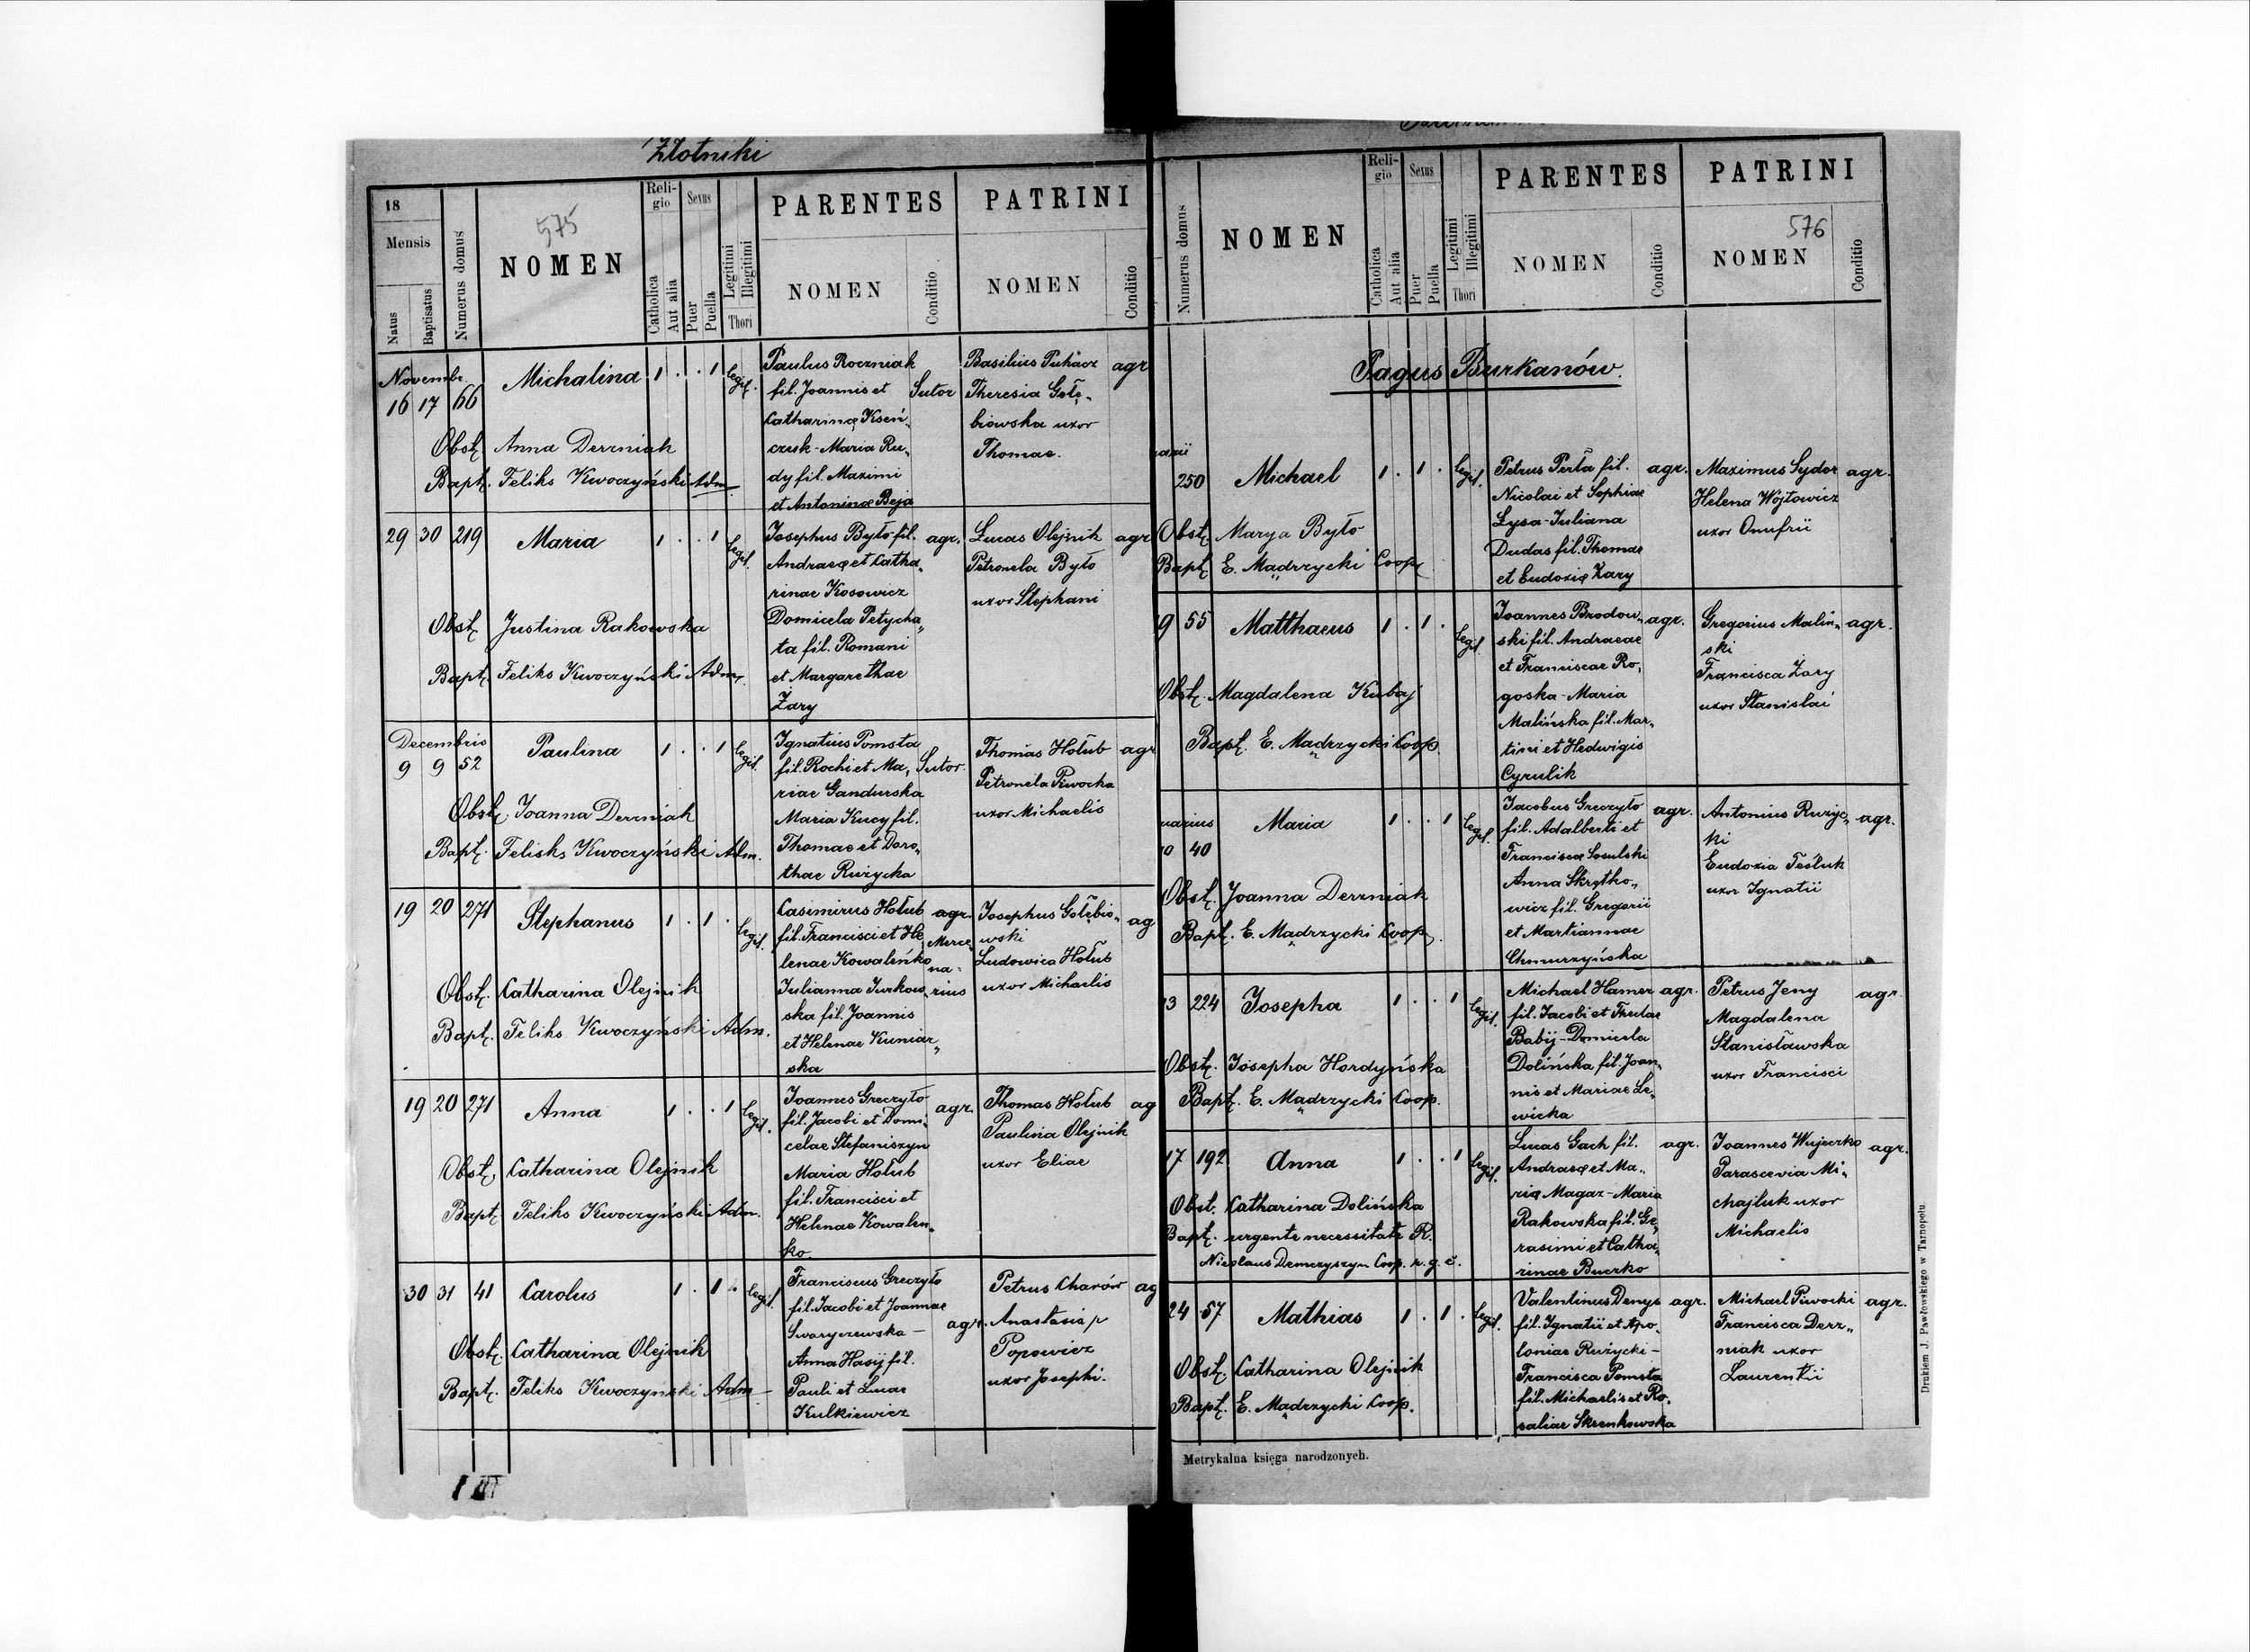 Złotniki
18
Mensis
Natus
Baptisatus
Numerus domus
575
NOMEN
Reli-
gio
Catholica
Aut alia
Sexus
Puer
Puella
Legitimi
Illegitimi
Thori
PARENTES
NOMEN
Conditio
PATRINI
NOMEN
Conditio
Novembr.
16 17 66 Michalina 1 . . 1 legit.
Paulus Roczniak
fil. Joannis et Sutor
Catharinae Kseń„
czuk - Maria Ru„
dy fil. Maximi
et Antoninae Beja
Basilius Puhacz agr
Theresia Gołę„
biowska uxor
Thomae.
Obst. Anna Derzniak
Bapt. Feliks Kwoczyński Adm.
29 30 219 Maria 1 . . 1 legit.
Josephus Było fil. agr.
Andreae et Catha„
rinae Kosowicz
Domicela Petycha„
ta fil. Romani
et Margarethae
Zary
Lucas Olejnik agr
Petronela Było
uxor Stephani
Obst. Justina Rakowska
Bapt. Feliks Kwoczyński Adm.
Decembris
9 9 52 Paulina 1 . . 1 legit.
Ignatius Pomsta
fil. Rochi et Ma„ Sutor
riae Gandurska
Maria Kucy fil.
Thomae et Doro„
thae Rużycka
Thomas Hołub agr
Petronela Piwocka
uxor Michaelis
Obst. Joanna Derzniak
Bapt. Felisks Kwoczyński Adm.
19 20 271 Stephanus 1 . 1 . legit.
Casimirus Hołub agr.
fil. Francisci et He„ Merce„
lenae Kowaleńko na„
Julianna Jurkow„ rius
ska fil. Joannis
et Helenae Kuniar„
ska
Josephus Gołębio„ ag
wski
Ludowica Hołub
uxor Michaelis
Obst. Catharina Olejnik
Bapt. Feliks Kwoczyński Adm.
19 20 271 Anna 1 . . 1 legit.
Joannes Greczyło agr.
fil. Jacobi et Domi„
celae Stefaniszyn
Maria Hołub
fil. Francisci et
Helenae Kowalen„
ko.
Thomas Hołub ag
Paulina Olejnik
uxor Eliae
Obst. Catharina Olejnik
Bapt. Feliks Kwoczyński Adm.
30 31 41 Carolus 1 . 1 . legit.
Franciscus Greczyło
fil. Jacobi et Joannae
Swaryczewska - agr.
Anna Hasij fil.
Pauli et Lucae
Kulkiewicz
Petrus Charów ag
Anastasia
Popowicz
uxor Josephi.
Obst. Catharina Olejnik
Bapt. Feliks Kwoczyński Adm
Numerus domus
NOMEN
Reli-
gio
Catholica
Aut alia
Sexus
Puer
Puella
Legitimi
Illegitimi
Thori
PARENTES
NOMEN
Conditio
PATRINI
576
NOMEN
Conditio
Pagus Burkanów.
250 Michael 1 . 1 . legit.
Petrus Perła fil. agr.
Nicolai et Sophiae
Łysa - Juliana
Dudas fil. Thomae
et Eudoxiae Zary
Maximus Sydor agr.
Helena Wójtowicz
uxor Onufrii
Obst. Marya Było
Bapt. E. Mądrzycki Coop.
9 55 Matthaeus 1 . 1 . legit.
Joannes Brodow„ agr.
ski fil. Andraeae
et Franciscae Ro„
goska - Maria
Malińska fil. Mar„
tini et Hedwigis
Cyrulik
Gregorius Malin„ agr.
ski
Francisca Zary
uxor Stanislai
Obst. Magdalena Kubaj
Bapt. E. Mądrzycki Coop.
uarius
40 Maria 1 . . 1 legit.
Jacobus Greczyło agr.
fil. Adalberti et
Franciscae Sosulski
Anna Skrytko„
wicz fil. Gregorii
et Martiannae
Chmurzyńska
Antonius Rużyc„ agr.
ki
Eudoxia Tesluk
uxor Ignatii
Obst. Joanna Derzniak
Bapt. E. Mądrzycki Coop.
3 224 Josepha 1 . . 1 legit.
Michael Hamer agr.
fil. Jacobi et Theclae
Babij - Domicela
Dolińska fil. Joan„
nis et Mariae Le„
wicka
Petrus Jeny agr
Magdalena
Stanisławska
uxor Francisci
Obst. Josepha Hordyńska
Bapt. E. Mądrzycki Coop.
17 192 Anna 1 . . 1 legit.
Lucas Gach fil. agr.
Andraeae et Ma„
riae Magaz - Maria
Rakowska fil. Ge„
rasimi et Catha„
rinae Buczko
Joannes Wujeczko agr.
Parascevia Mi„
chajluk uxor
Michaelis
Obst. Catharina Dolińska
Bapt. urgente necessitate R.
Nicolaus Demczyszyn Coop. r. g. c.
24 57 Mathias 1 . 1 . legit.
Valentinus Denys agr.
fil. Ignatii et Apo„
loniae Rużycki -
Francisca Pomsta
fil. Michaelis et Ro„
saliae Skrenkowska
Michael Piwocki agr.
Francisca Derz„
niak uxor
Laurentii
Obst. Catharina Olejnik
Bapt. E. Mądrzycki Coop.
Metrykalna księga narodzonych.
Drukiem J. Pawłowskiego w Tarnopolu.